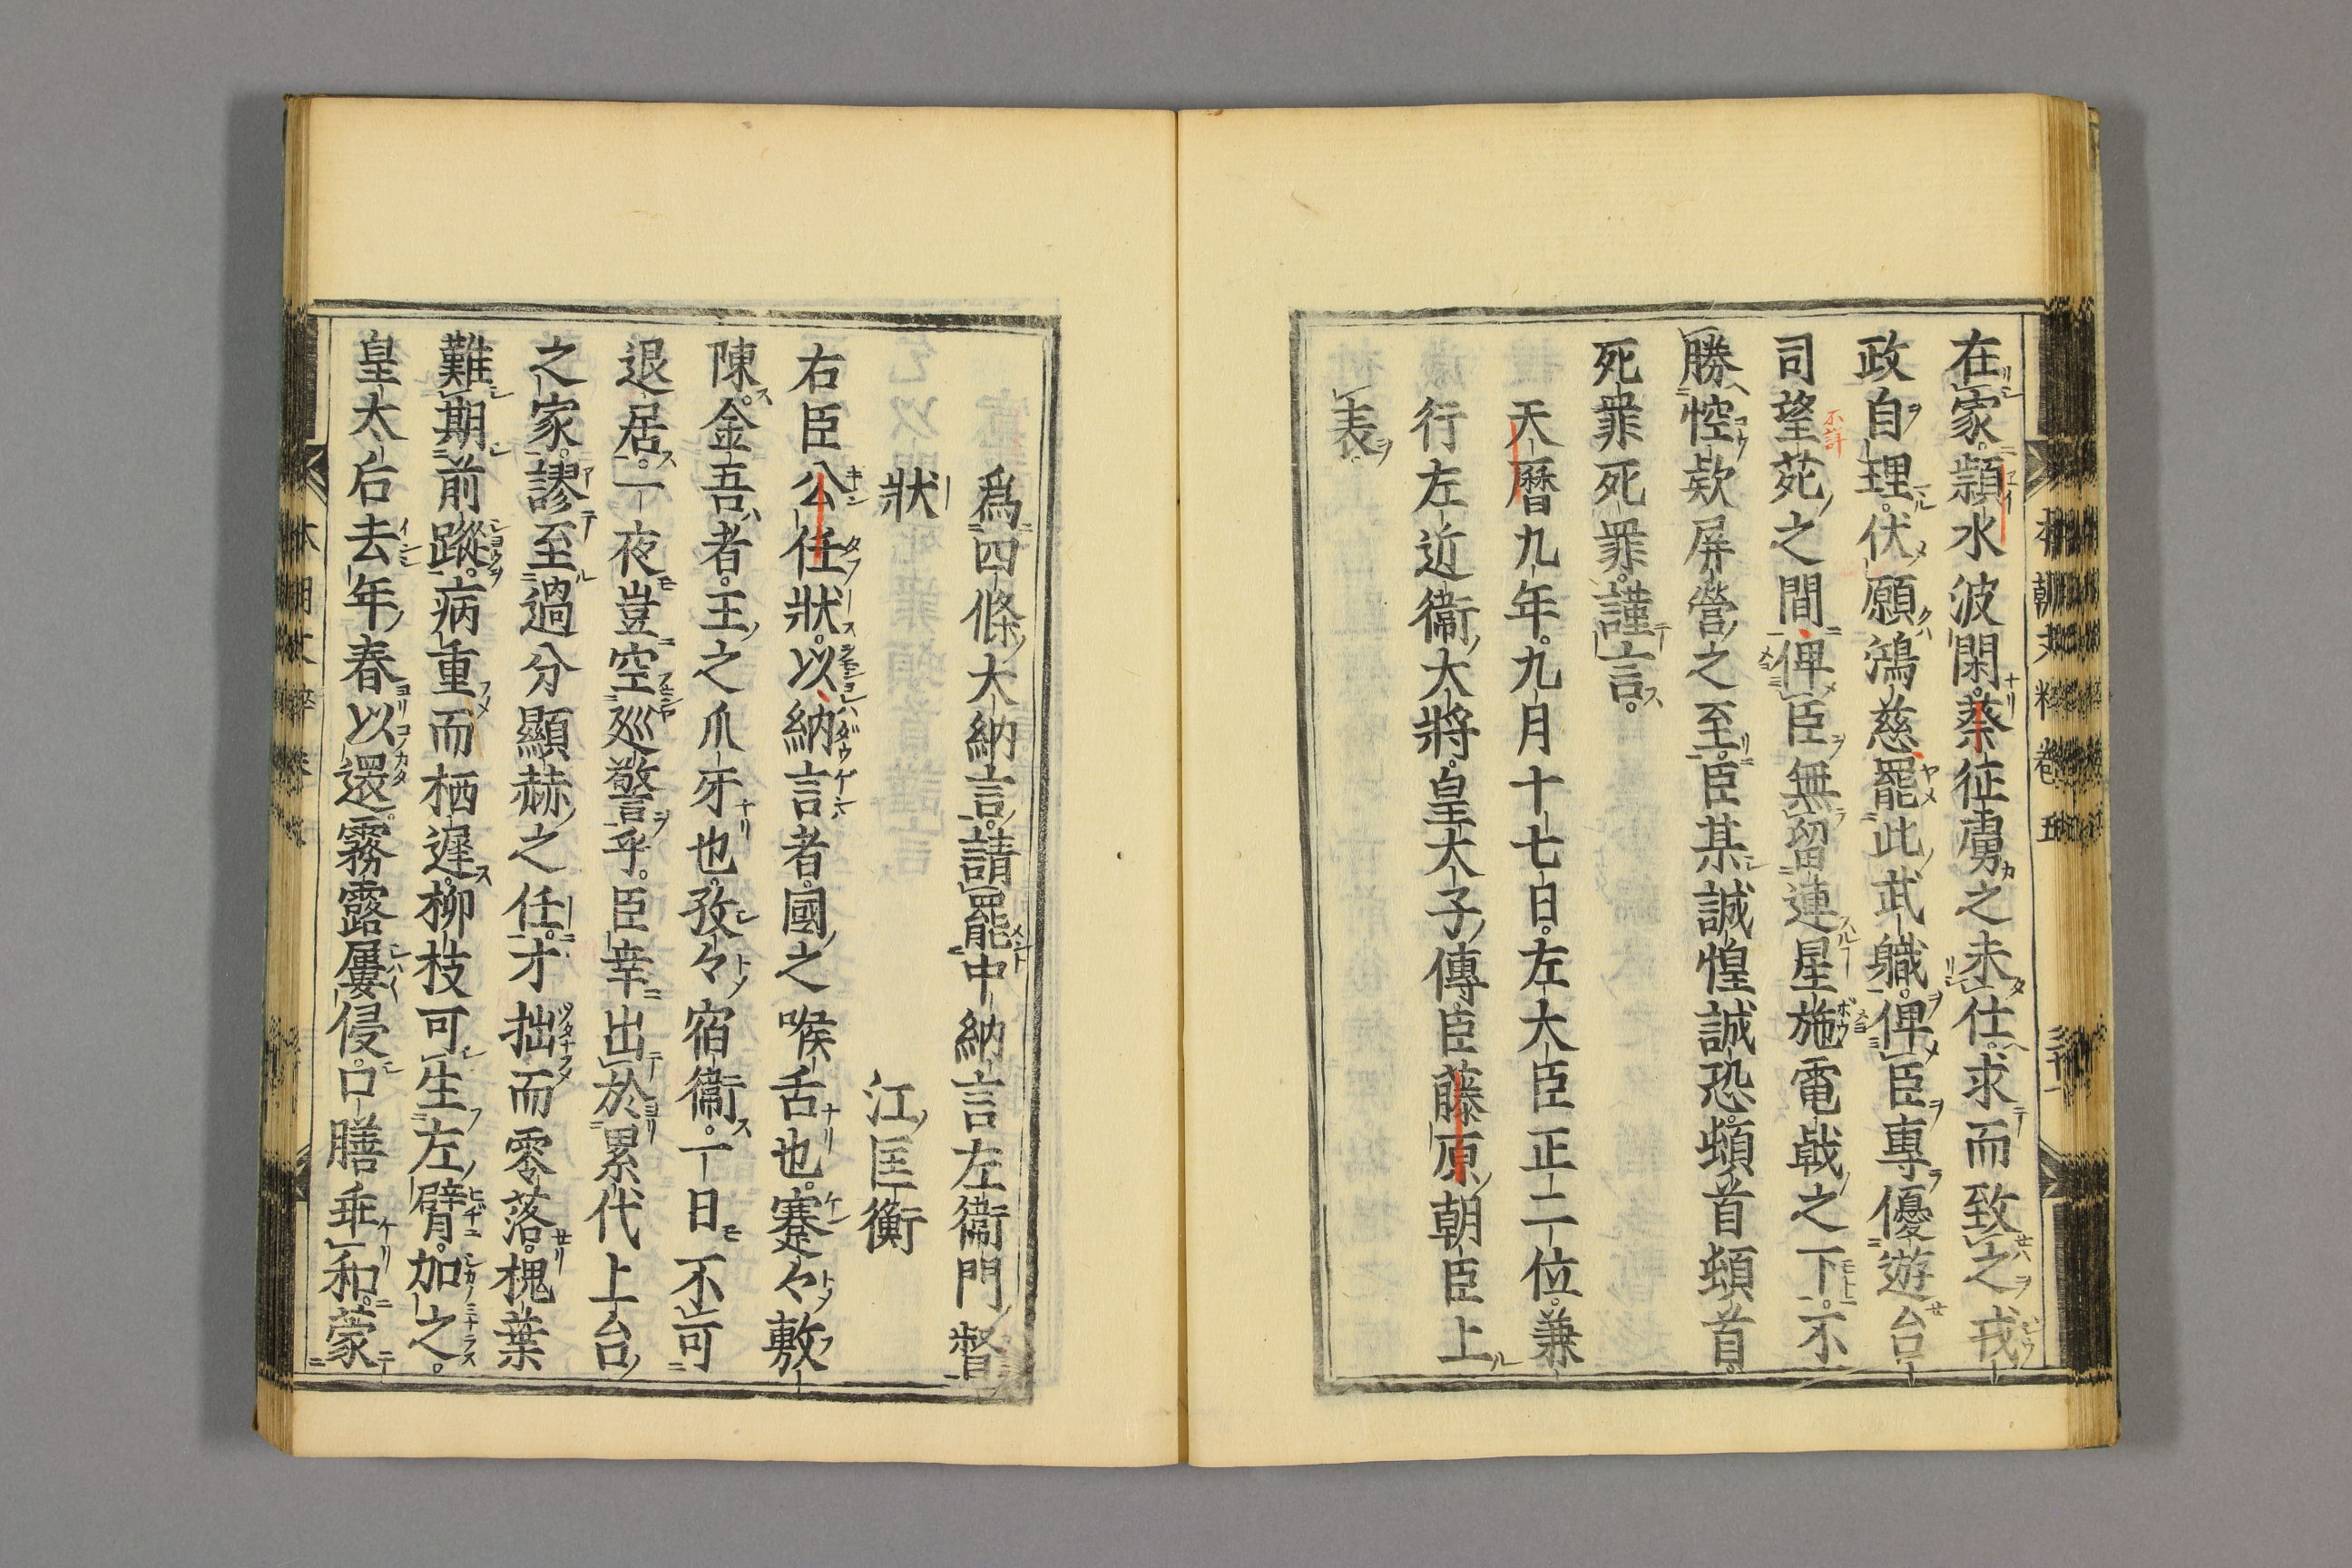 在家。潁水波閑。蔡征虜之未仕。求而致之。戎
政自理。伏願鴻慈罷此武職。俾臣專優遊台
司望苑之間。俾臣無留連星施電戟之下。不
勝悾欵屏營之至。臣某誠惶誠恐頓首頓首。
死罪死罪。謹言。
天曆九年。九月十七日。左大臣正二位。兼
行左近衞大將。皇太子傳臣藤原朝臣上
表
爲四條大納言。請罷中納言左衞門督
狀
江匡衡
右臣公任狀。以納言者。國之喉舌也。蹇々敷
陳。金吾者。王之爪牙也。孜々宿衞。一日不可
退居。一夜豈空巡警乎。臣幸出於累代上台
之家。謬至過分顯赫之任。才拙而零落。槐葉
難期前蹤。病重而栖遲。柳枝可生左臂。加之。
皇太后去年春以還。霧露屢侵。口膳乖和。蒙
本朝文粹卷五
三十一